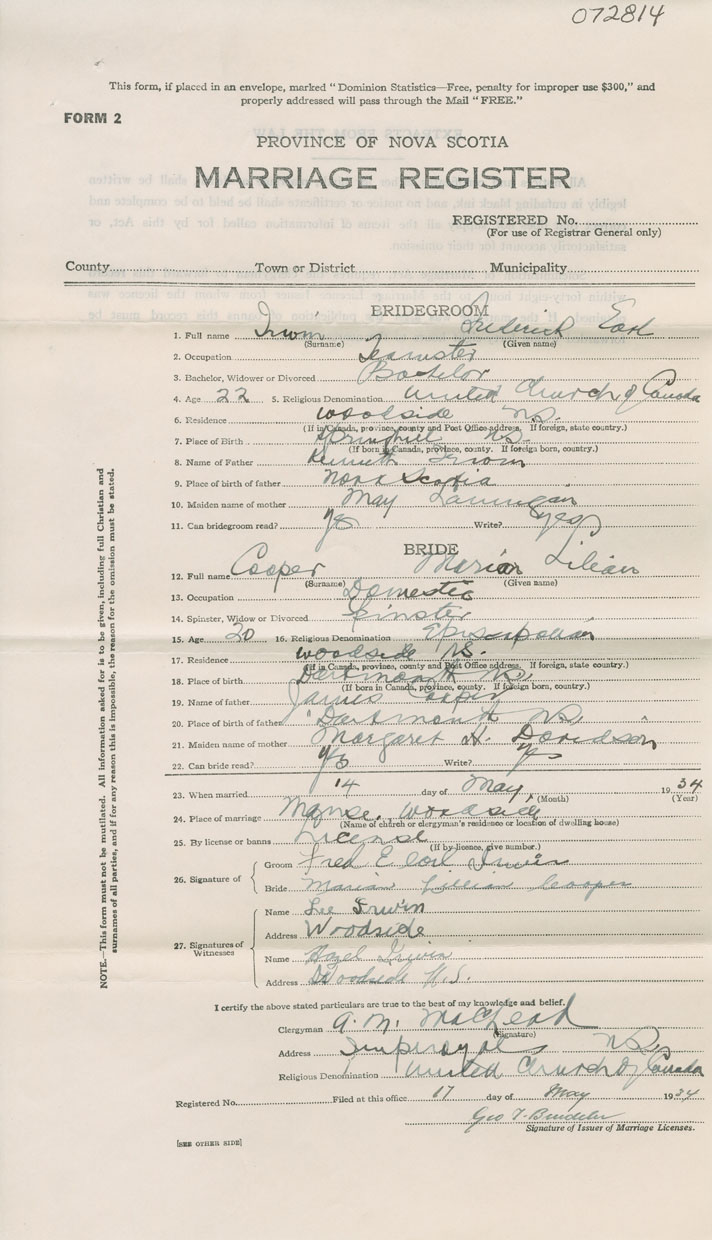 072814
This form, if placed in an envelope, marked "Dominion Statistics—Free, penalty for improper use $300," and
properly addressed will pass through the Mail "FREE."
FORM 2
PROVINCE OF NOVA SCOTIA
MARRIAGE REGISTER
REGISTERED No.
(For use of Registrar General only)
County Town or District Municipality
BRIDEGROOM
1. Full name Irwin Frederick Earl
(Surname) (Given name)
2. Occupation Teamster
3. Bachelor, Widower or Divorced Bachelor
4. Age 22 5. Religious Denomination United Church of Canada
6. Residence Woodside N.S.
(If in Canada, province, county and Post Office address. If foreign, state country.)
7. Place of Birth Springhill N.S.
(If born in Canada, province, county. If foreign born, country.)
8. Name of Father Kenneth Irwin
9. Place of birth of father Nova Scotia
10. Maiden name of mother May
11. Can bridegroom read? yes Write? yes
BRIDE
12. Full name Cooper Marian Lilian
(Surname) (Given name)
13. Occupation Domestic
14. Spinster, Widow or Divorced Spinster
15. Age 20 16. Religious Denomination Episcopalian
17. Residence Woodside N.S.
(If in Canada, province, county and Post Office address. If foreign, state country.)
18. Place of birth Dartmouth N.S.
(If born in Canada, province, county. If foreign born, country.)
19. Name of father James Cooper
20. Place of birth of father "Dartmouth N.S.
21. Maiden name of mother Margaret H. Davidson
22. Can bride read? yes Write? yes
23. When married 14 day of May, 1934
(Month) (Year)
24. Place of marriage Manse, Woodside
(Name of church or clergyman's residence or location of dwelling house)
25. By license or banns License
(If by licence, give number.)
26. Signature of
Groom Fred E Earl Irwin
Bride Marian Lillian Cooper
27. Signatures of Witnesses
Name Lee Irwin
Address Woodside
Name Hazel Irwin
Address Woodside N.S.
I certify the above stated particulars are true to the best of my knowledge and belief.
Clergyman A. N. MacLeod
(Signature)
Address Imperoyal N.S.
Religious Denomination United Church of Canada
Registered No. Filed at this office 17 day of May 1934
Geo T.
Signature of Issuer of Marriage Licenses.
[SEE OTHER SIDE]
NOTE.—This form must not be mutilated. All information asked for is to be given, including full Christian and
surnames of all parties, and if for any reason this is impossible, the reason for the omission must be stated.